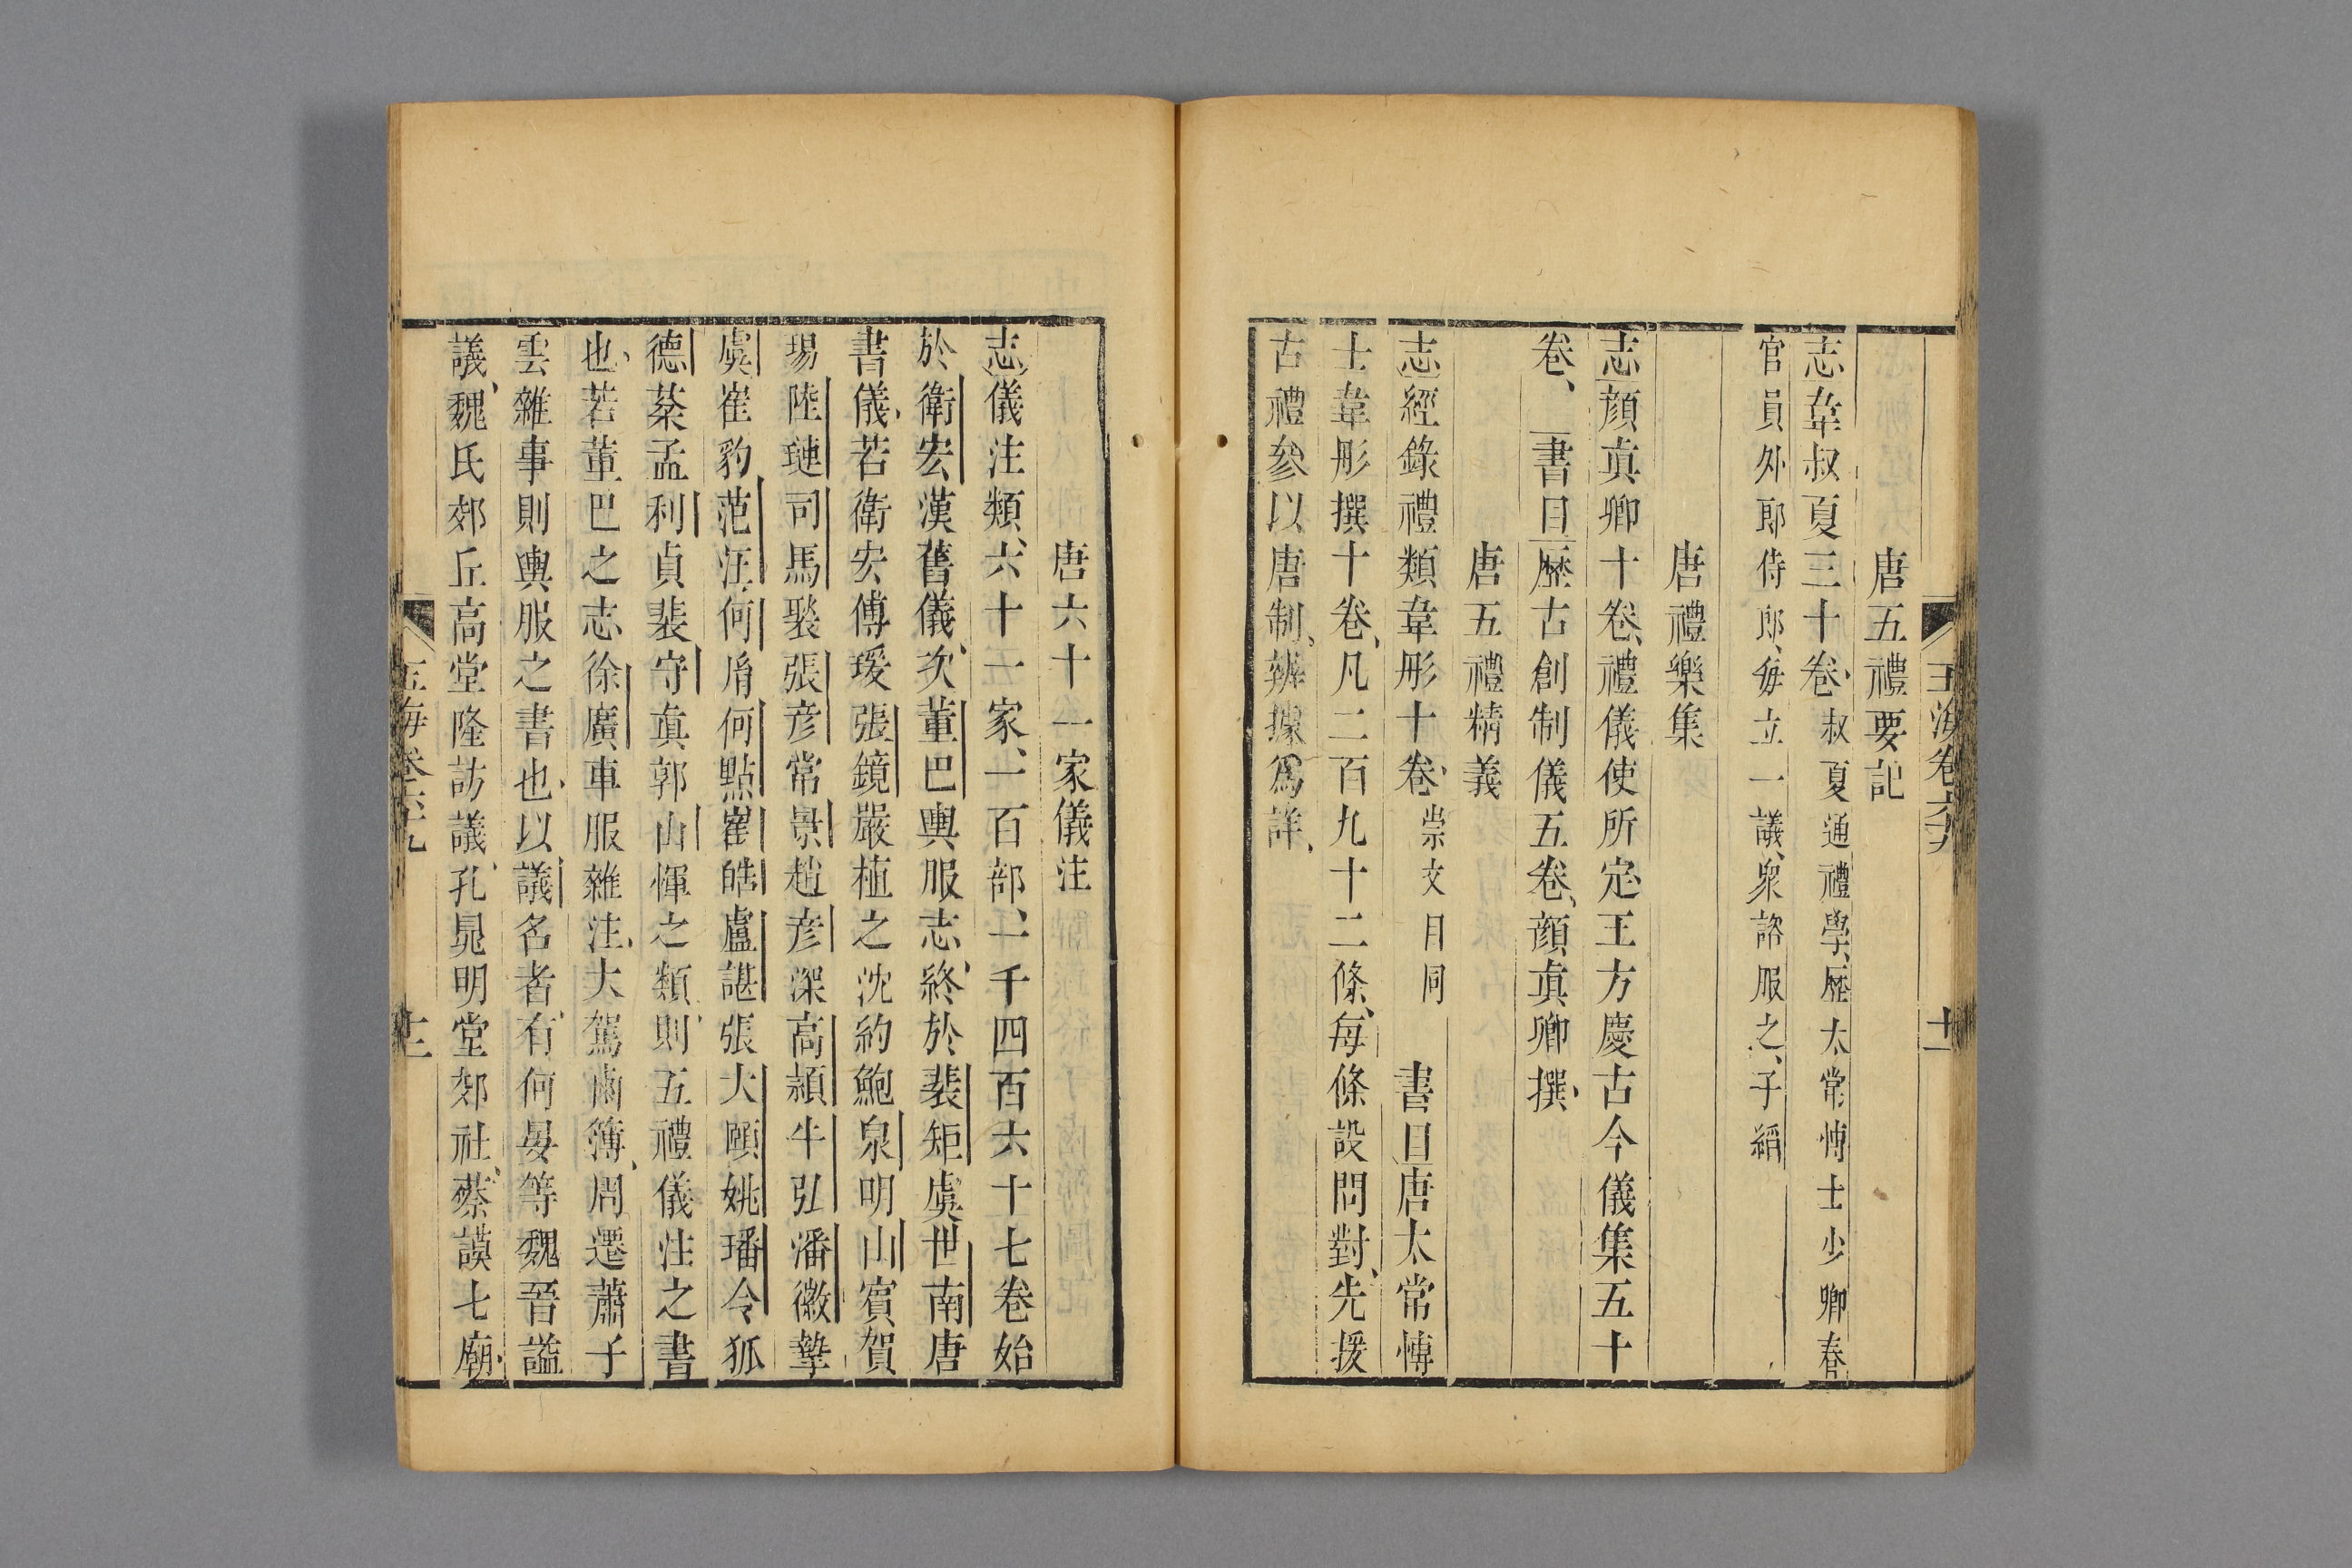 玉海卷六九 十一
唐五禮要記
志韋叔夏三十卷叔夏通禮學、歷太常博士少卿春
官員外郎侍郎、每立一議、衆諮服之、子縚
唐禮樂集
志顏真卿十卷、禮儀使所定王方慶古今儀集五十
卷、 書目歷古創制儀五卷、顏真卿撰、
唐五禮精義
志經錄禮類韋彤十卷、崇文目同 書目唐太常博
士韋彤撰十卷、凡二百九十二條、每條設問對、先援
古禮參以唐制、辨據爲詳、
唐六十一家儀注
志儀注類、六十一家、一百部、一千四百六十七卷始
於衛宏漢舊儀、次董巴輿服志、終於裴矩虞世南唐
書儀、若衛宏傅瑗張鏡嚴植之沈約鮑泉明山賓賀
瑒陸璉司馬褧張彥常景趙彥深高熲牛弘潘徽摯
虞崔豹范汪何胤何點崔皓盧諶張大頤姚璠令狐
德棻孟利貞裴守真郭山惲之類、則五禮儀注之書
也、若董巴之志徐廣車服雜注、大駕鹵簿、周遷蕭子
雲雜事則輿服之書也、以議名者、有何晏等魏晉謚
議、魏氏郊丘高堂隆訪議、孔晁明堂郊社、蔡謨七廟、
玉海卷六九 十二